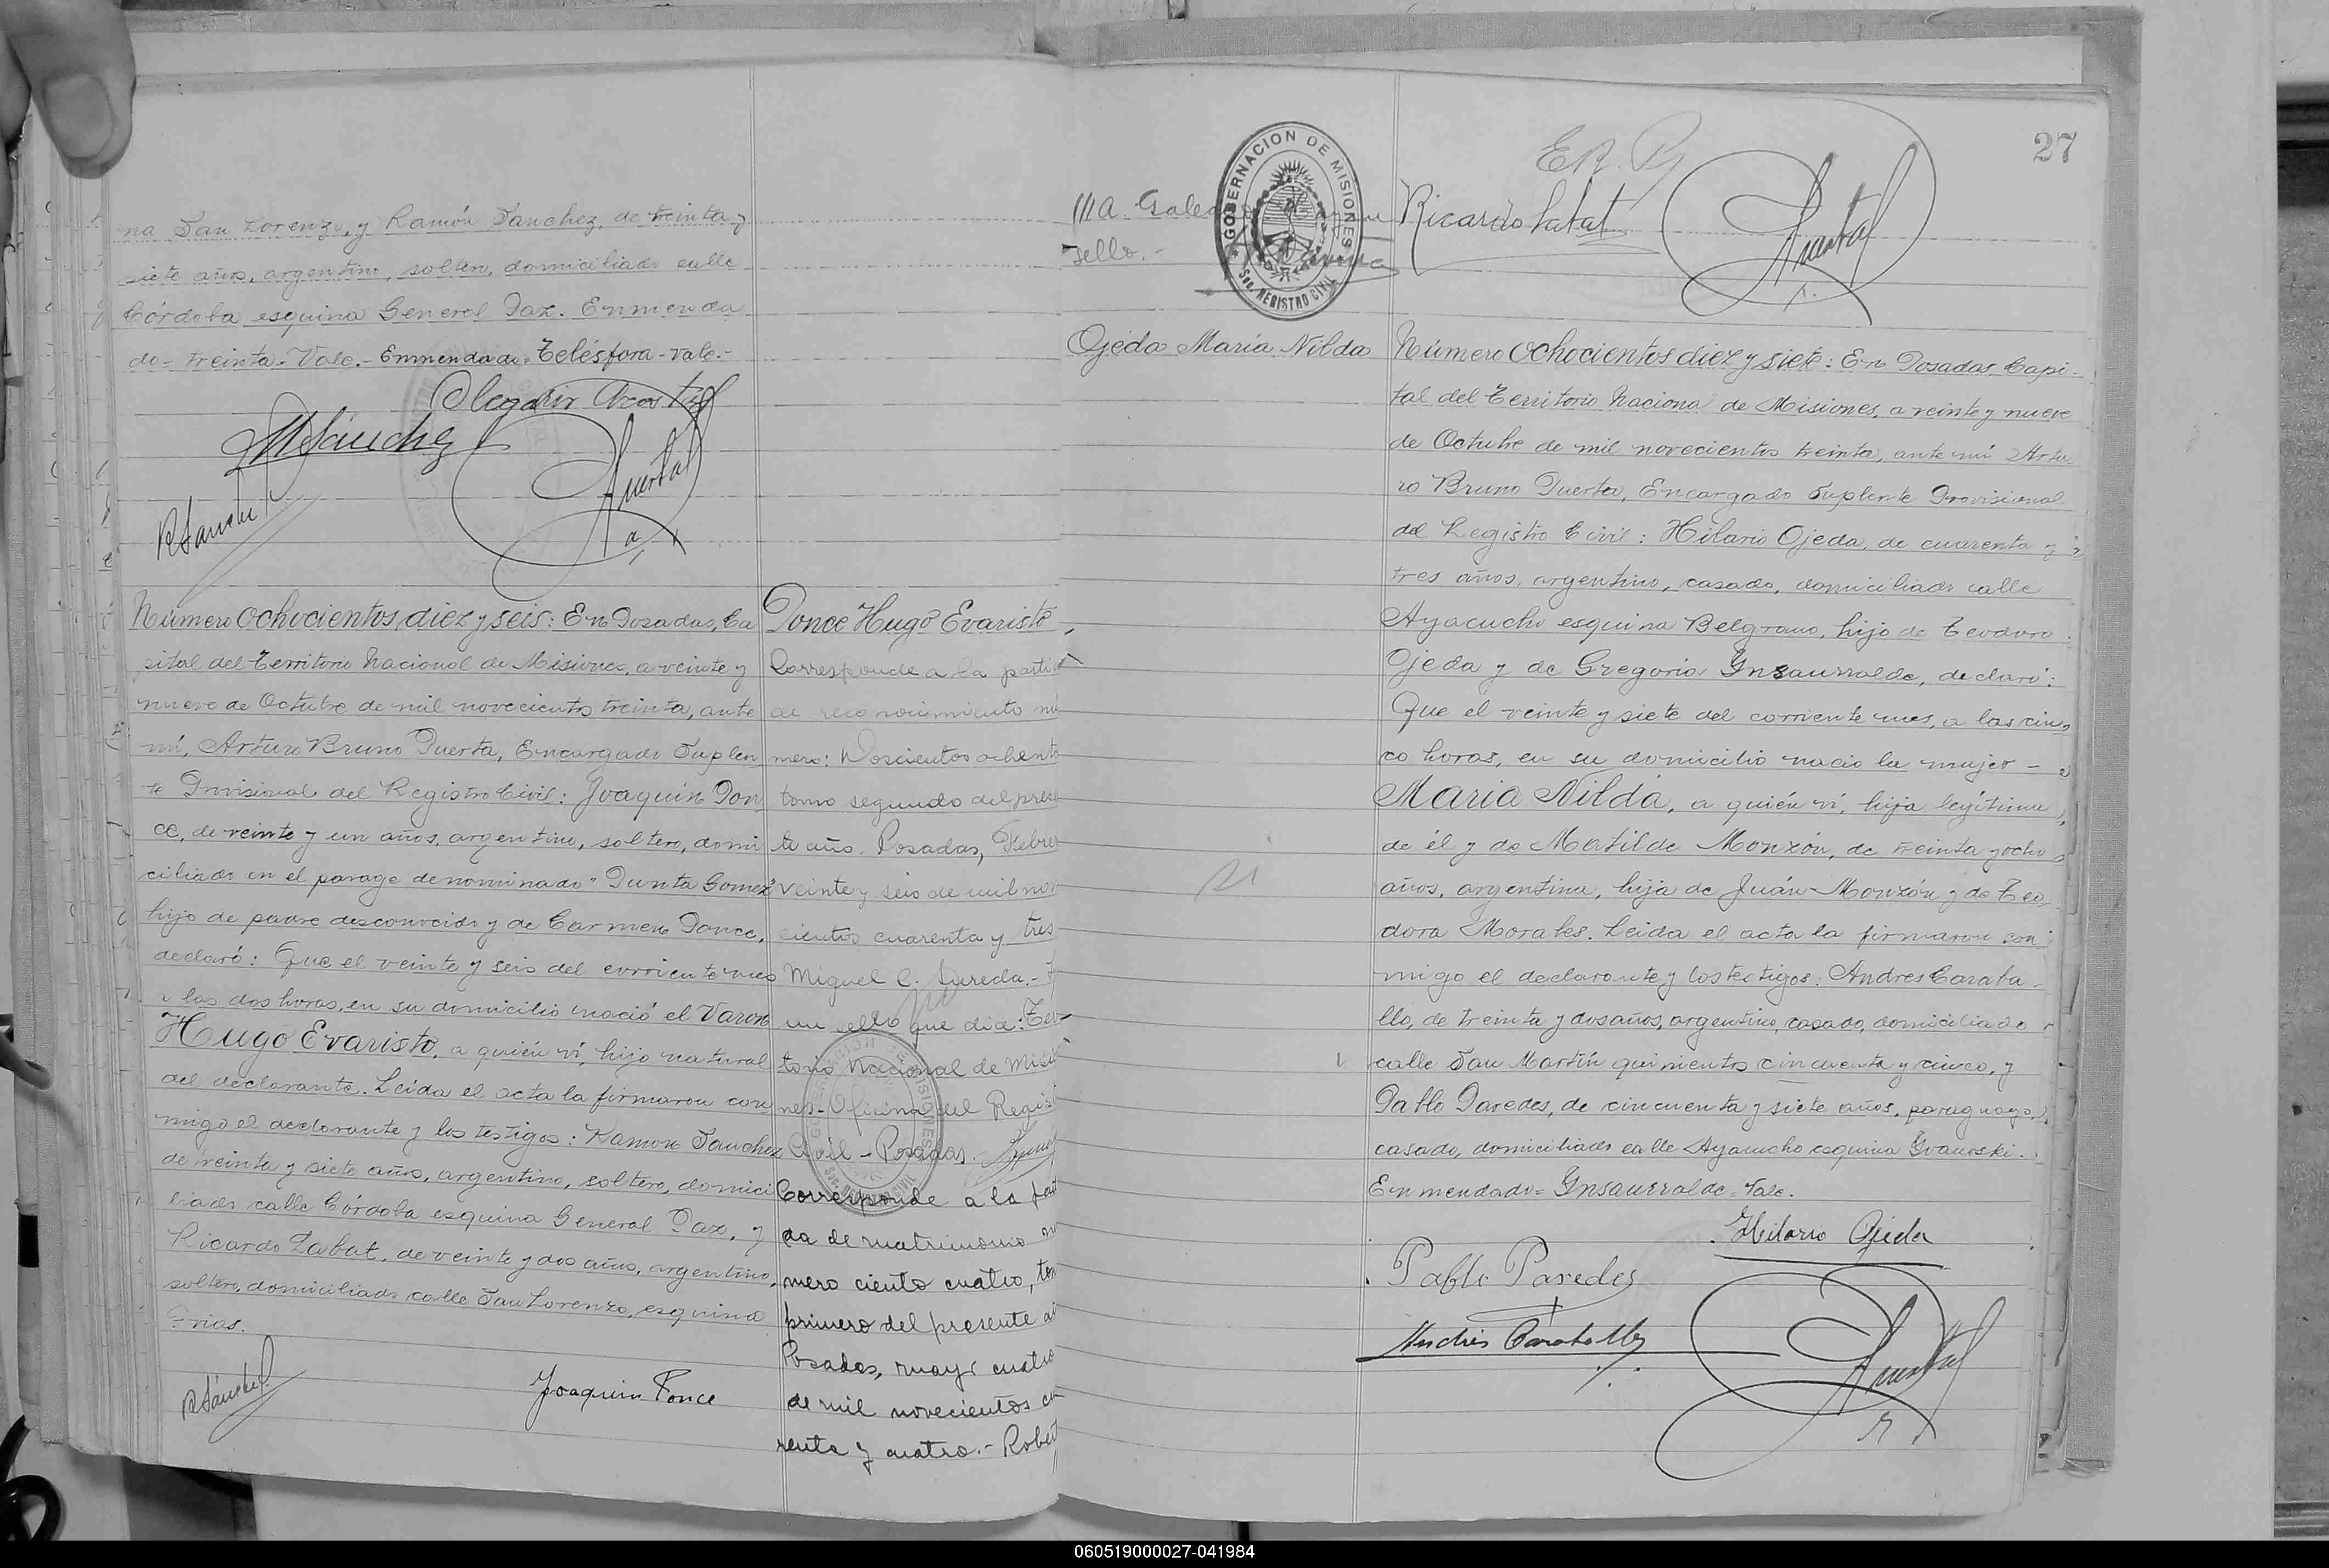 na San Lorenzo, y Ramón Sanchez, de treinta y
siete años, argentino, soltero, domiciliado calle
Córdoba esquina General Paz. Enmenda
do= treinta- Vale.- Enmendado. Telésfora-vale.-
Olegario Acosta
MSánchez
RSanchez
Número Ochocientos diez y seis: En Posadas, Ca
pital del Territorio Nacional de Misiones, a veinte y
nueve de Octubre de mil novecientos treinta, ante
mí, Arturo Bruno Puerta, Encargado Suplen
te Provisional del Registro Civil: Joaquín Pon
ce, de veinte y un años, argentino, soltero, domi
ciliado en el parage denominado "Punta Gomez"
hijo de padre desconocido y de Carmen Ponce,
declaró: Que el veinte y seis del corriente mes
a las dos horas, en su domicilio nació el Varon
Hugo Evaristo, a quién ví, hijo natural
del declarante. Leida el acta la firmaron con
migo el declarante y los testigos: Ramon Sanchez
de treinta y siete años, argentino, soltero, domici
liado calle Córdoba esquina General Paz, y
Ricardo Labat, de veinte y dos años, argentino,
soltero, domiciliado calle San Lorenzo, esquina
Frias.
RSánchez
Joaquin Ponce
Ponce Hugo Evaristo
Corresponde a la parti
de reconocimiento nú
mero: Doscientos ochent
tomo segundo del prese
te año. Posadas, Febre
veinte y seis de mil no
cientos cuarenta y tres
Miguel C. Sureda.-
un sello que dice: Ter
torio Nacional de Misi
nes- Oficina del Regis
Civil - Posadas.-
Corresponde a la par
da de matrimonio nu
mero ciento cuatro, tom
primero del presente a
Posadas, mayo cuatro
de mil novecientos cu
renta y cuatro.- Rober
GOBERNACION DE MISIONES
Sec. REGISTRO CIVIL
27
E.R.
Ma. Galea
sello.-
GOBERNACION DE MISIONES
Sec. REGISTRO CIVIL
Ricardo Labat
Puerta
Ojeda María Nilda
Número Ochocientos diez y siete: En Posadas, Capi-
tal del Territorio Naciona de Misiones, a veinte y nueve
de Octubre de mil novecientos treinta, ante mí Artu-
ro Bruno Puerta, Encargado Suplente Provisional
del Registro Civil: Hilario Ojeda, de cuarenta y
tres años, argentino, casado, domiciliado calle
Ayacucho esquina Belgrano, hijo de Teodoro
Ojeda y de Gregoria Insaurralde, declaró:
Que el veinte y siete del corriente mes, a las cin-
co horas, en su domicilio nació la mujer -
María Nilda, a quién ví, hija legítima
de él y de Matilde Monzón, de treinta y ocho
años, argentina, hija de Juán Monzón y de Teo-
dora Morales. Leida el acta la firmaron con
migo el declarante y los testigos: Andres Caraba-
llo, de treinta y dos años, argentino, casado, domiciliado
calle San Martín quinientos cincuenta y cinco, y
Pablo Paredes, de cincuenta y siete años, paraguayo,
casado, domiciliado calle Ayacucho esquina Ivanoski.
Enmendado= Insaurralde= Vale.
Hilario Ojeda
Pablo Paredes
Andrés Caraballo
Puerta
060519000027-041984